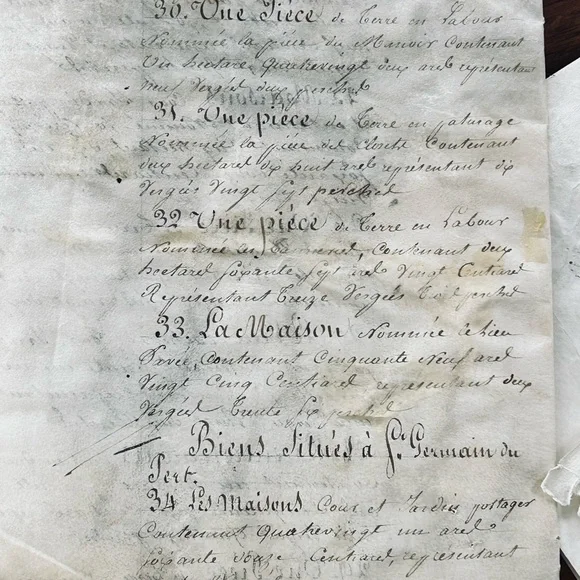 30. Une Piéce de Terre en Labour
Nommée la piéce du Manoir Contenant
Un hectare, Quatrevingt deux ares représentant
neuf Vergées deux perches
31. Une piéce de Terre en paturage
Nommée la piéce del Contenant
deux hectares dix huit ares représentant dix
Vergées Vingt sept perches
32 Une piéce de Terre en Labour
Nommée contenant deux
hectares soixante sept ares Vingt Centiares
Représentant Treize Vergées perches
33. La Maison Nommée le lieu
contenant Cinquante Neuf ares
Vingt Cinq Centiares représentant deux
Vergées Trente six perches
Biens Situés à St. Germain du
Pert.
34 Les Maisons Cour et Jardin potager
Contenant Quatrevingt un ares
soixante douze Centiares, représentant